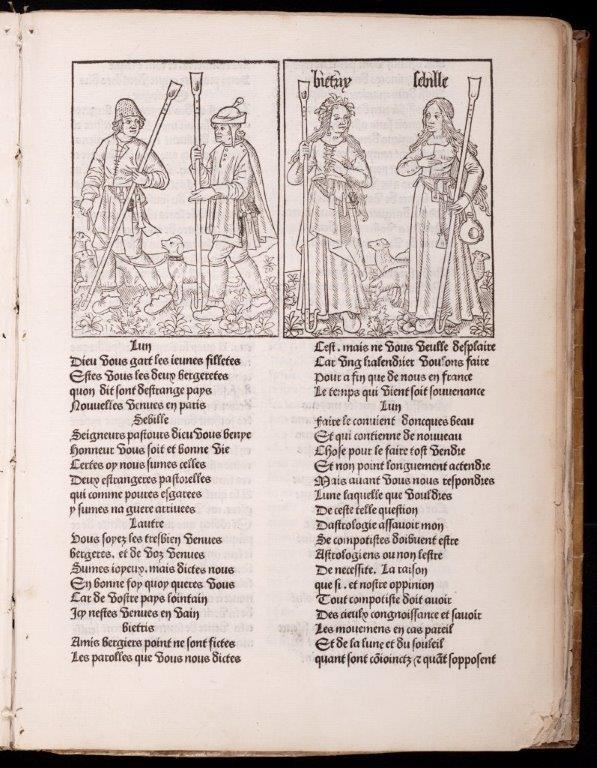 bietrix sebille
Lun
Dieu vous gart les ieunes filletes
Estes vous les deux bergeretes
quon dit sont destrange pays
Nouuelles venues en paris
Sebille
Seigneurs pastours dieu vous benye
Honneur vous soit et bonne vie
Certes oy nous sumes celles
Deux estrangeres pastorelles
qui comme poures esgarees
y sumes na guere arriuees
Lautre
Vous soyez les tresbien venues
bergeres, et de voz venues
Sumes ioyeux, mais dictes nous
En bonne foy quoy queres vous
Car de vostre pays lointain
Icy nestes venues en vain
bietris
Amis bergiers point ne sont fictes
Les parolles que vous nous dictes
Cest, mais ne vous veulle desplaire
Car vng kalendrier voulons faire
Pour a fin que de nous en france
Le temps qui vient soit souuenance
Lun
Faire le conuient doncques beau
Et qui contienne de nouueau
Chose pour le faire tost vendre
Et non point longuement actendre
Mais auant vous nous respondres
Lune laquelle que vouldres
De ceste telle question
Dastrologie assauoir mon
Se compotistes doibuent estre
Astrologiens ou non lestre
De necessite. La raison
que si. et nostre oppinion
Tout compotiste doit auoir
Des cieulx congnoissance et sauoir
Les mouuemens en cas pareil
Et de la lune et du souleil
quant sont cōioinctz ⁊ quāt sopposent